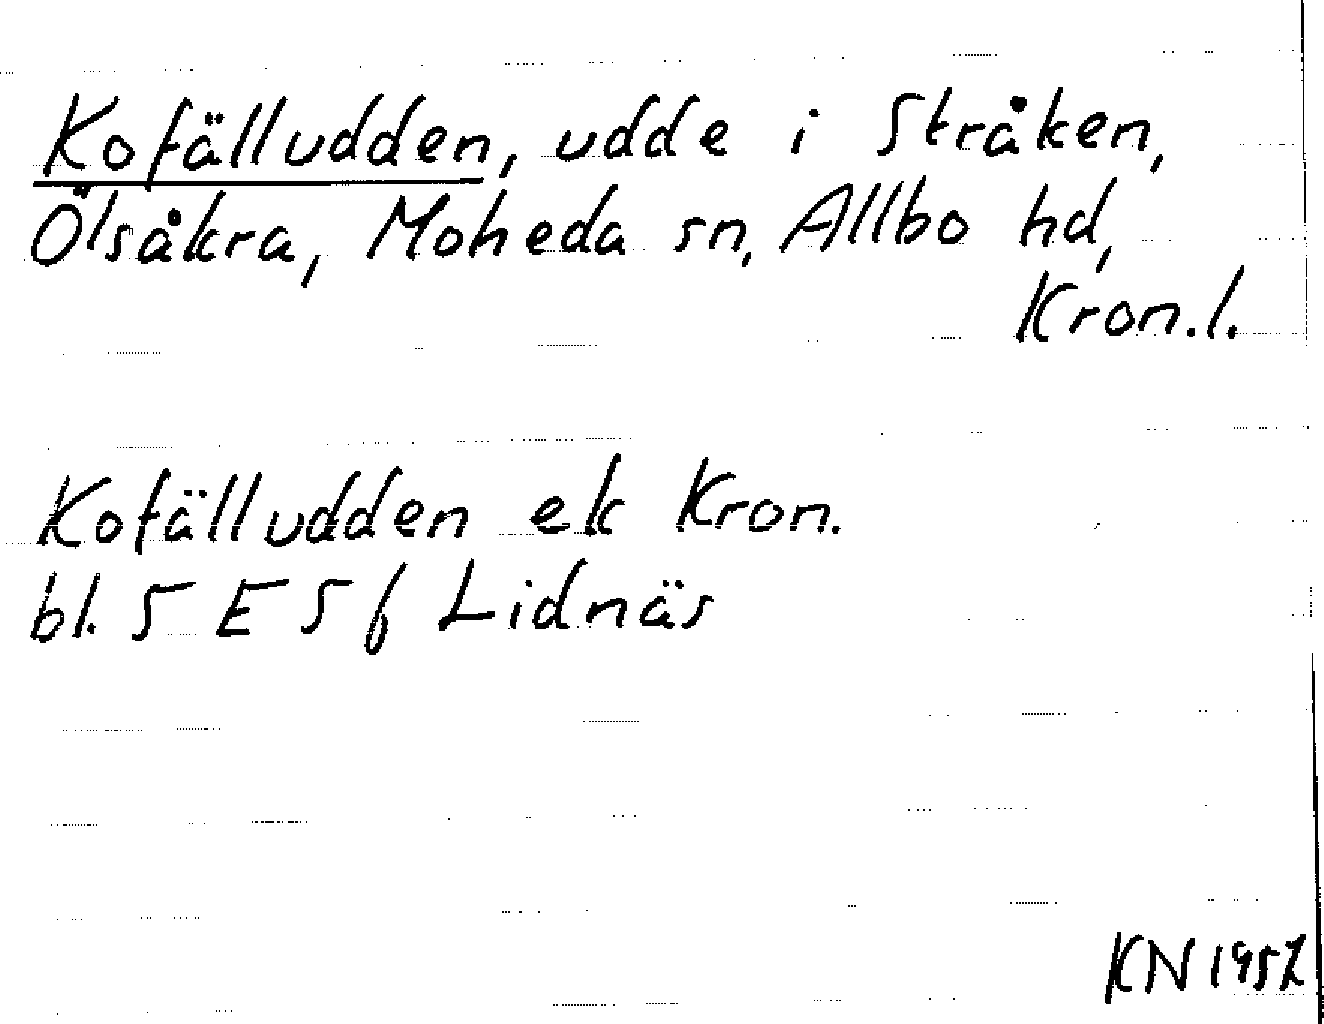 Kofälludden, udde i Stråken,
Ölsåkra, Moheda sn, Allbo hd,
Kron.l.
Kofälludden ek Kron.
bl. 5 E 5 f Lidnäs
KN 1957